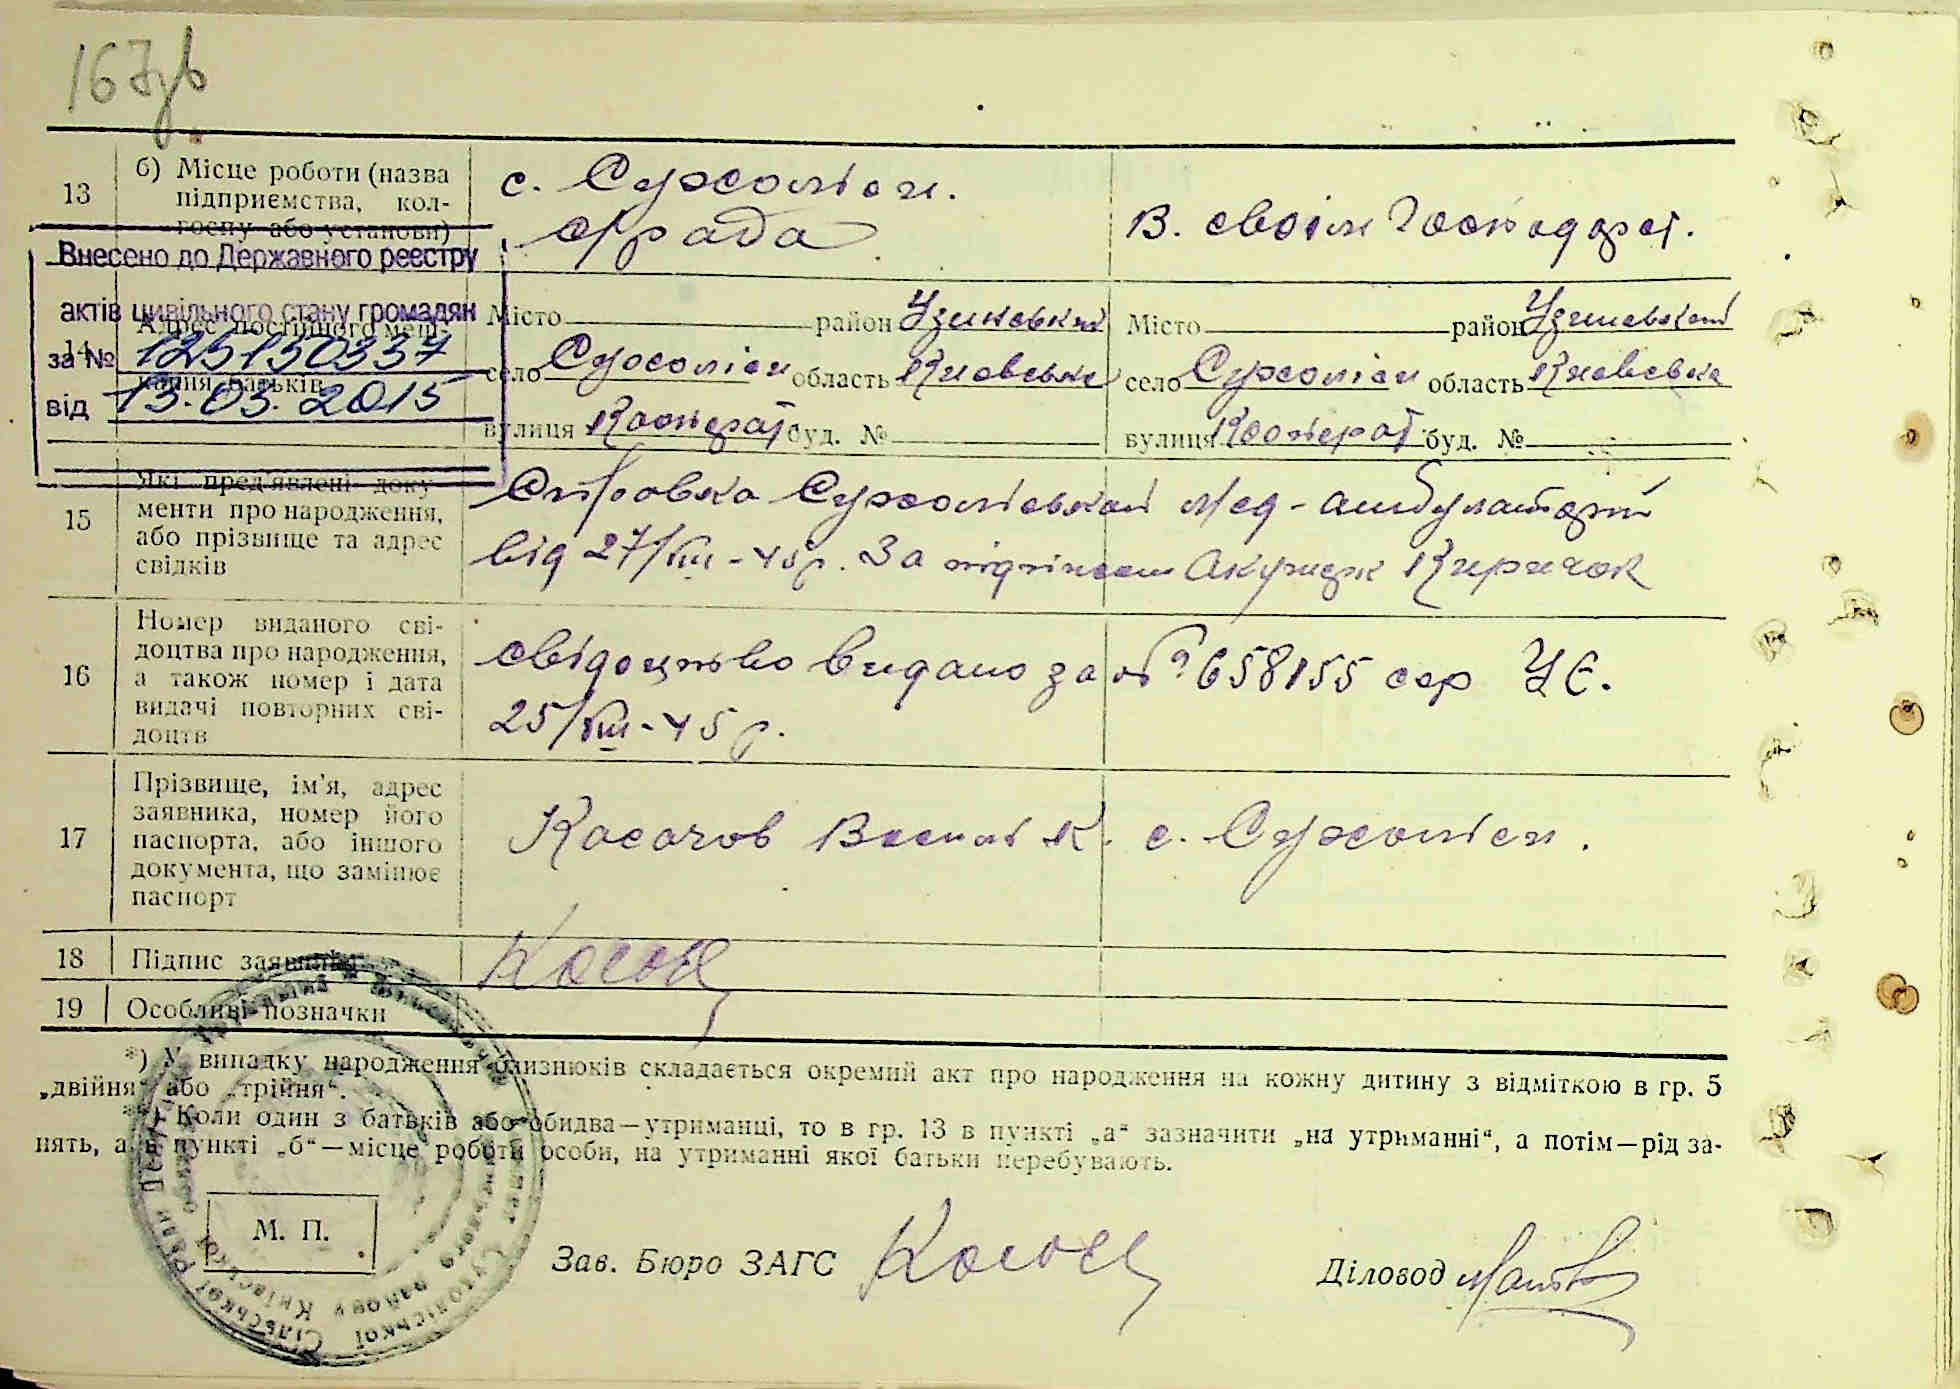 167зв
13
б) Місце роботи (назва
підприємства, кол-
госпу або установи)
с. Сухоліси.
С/рада
В. своїм Господарст.
Внесено до Державного реєстру
актів цивільного стану громадян
за № 125150337
від 13.03.2015
14
Адрес постійного меш-
кання батьків
Місто район Узинський
село Сухоліси область Київська
вулиця Кооперат буд. №
Місто район Узинський
село Сухоліси область Київська
вулиця Кооперат буд. №
15
Які пред'явлені доку-
менти про народження,
або прізвище та адрес
свідків
Справка Сухоліської Мед-амбулаторії
від 27/VIII-45р. За підписом Акушерк Киричок
16
Номер виданого сві-
доцтва про народження,
а також номер і дата
видачі повторних сві-
доцтв
свідоцтво видано за № 658155 сер УЄ.
25/VIII-45 р.
17
Прізвище, ім'я, адрес
заявника, номер його
паспорта, або іншого
документа, що замінює
паспорт
К. с. Сухоліси.
18
Підпис заявника
19
Особливі позначки
*) У випадку народження близнюків складається окремий акт про народження на кожну дитину з відміткою в гр. 5
„двійня“ або „трійня“.
**) Коли один з батьків або обидва—утриманці, то в гр. 13 в пункті „а“ зазначити „на утриманні“, а потім—рід за-
нять, а в пункті „б“—місце роботи особи, на утриманні якої батьки перебувають.
М. П.
Зав. Бюро ЗАГС
Діловод